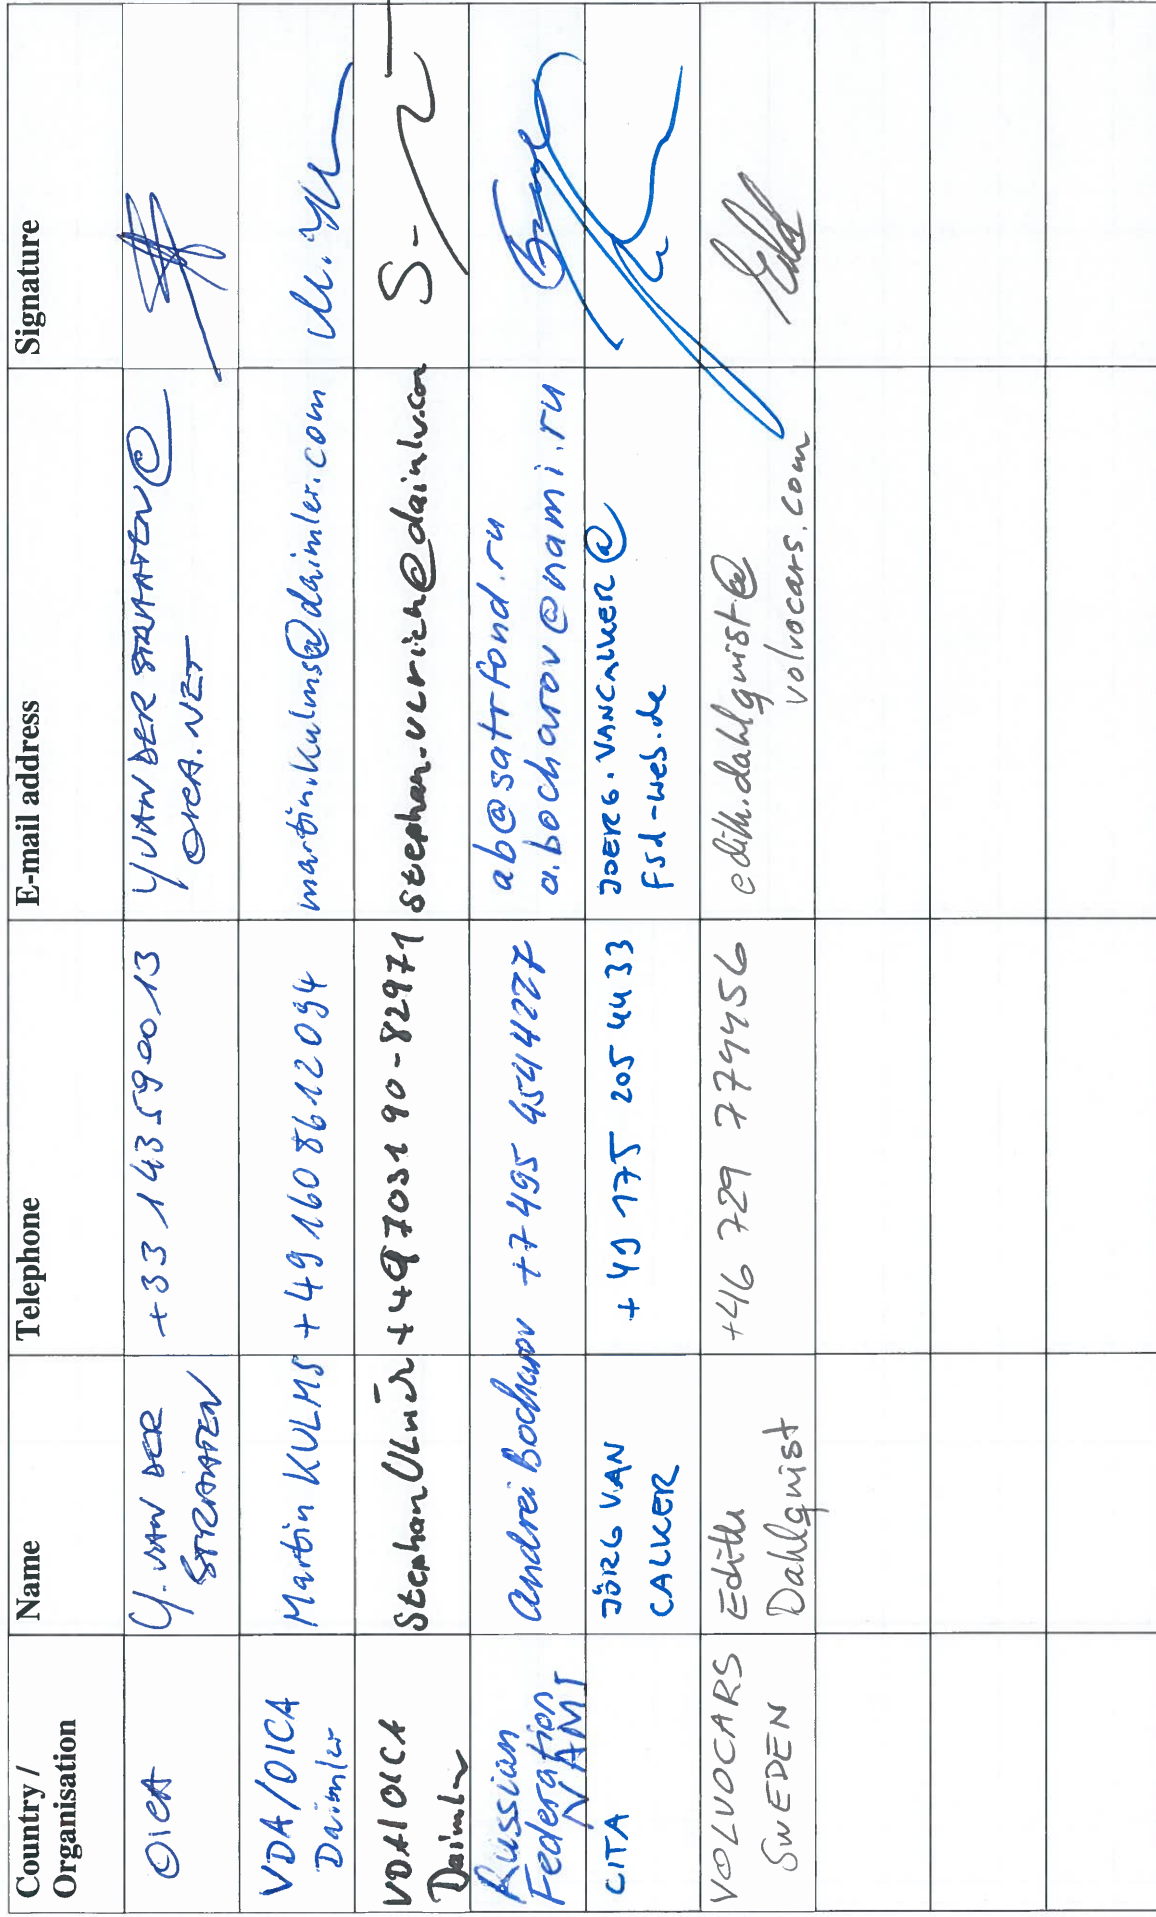 Country /
Organisation
Name
Telephone
E-mail address
Signature
OICA
Y. VAN DER
STRAATEN
+33 1 43 59 00 13
YVANDERSTRAATEN@
OICA.NET
VDA/OICA
Daimler
Martin KULMS
+49 160 8612094
martin.kulms@daimler.com
VDA/OICA
Daimler
Stephan Ulrich
+497031 90-82971
stephan.ulrich@daimler.com
Russian
Federation
NAMI
Andrei Bocharov
+7 495 4544227
ab@satrfond.ru
a.bocharov@nami.ru
CITA
JÖRG VAN
CALKER
+49 175 205 4433
JOERG.VANCALKER@
FSd-web.de
VOLVOCARS
SWEDEN
Edith
Dahlquist
+46 729 774456
edith.dahlquist@
volvocars.com